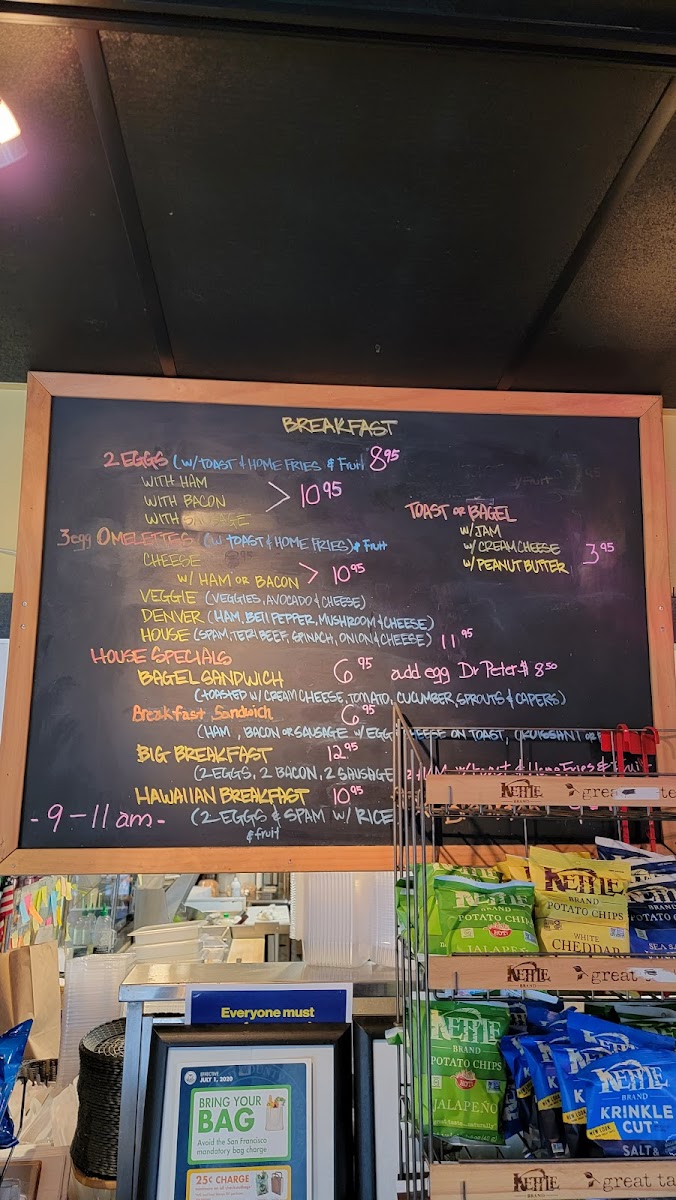 BREAKFAST
2 EGGS (W/ TOAST & HOME FRIES & Fruit 8.95
WITH HAM
WITH BACON > 10.95
WITH SAUSAGE
3 egg OMELETTES (W/ TOAST & HOME FRIES) & Fruit
CHEESE
W/ HAM OR BACON > 10.95
VEGGIE (VEGGIES, AVOCADO & CHEESE)
DENVER (HAM, BELL PEPPER, MUSHROOM & CHEESE)
HOUSE (SPAM, TERI BEEF, SPINACH, ONION & CHEESE) 11.95
TOAST OR BAGEL
W/ JAM
W/ CREAM CHEESE 3.95
W/ PEANUT BUTTER
HOUSE SPECIALS
BAGEL SANDWICH 6.95 add egg Dr Peter $ 8.50
(TOASTED W/ CREAM CHEESE, TOMATO, CUCUMBER, SPROUTS & CAPERS)
Breakfast Sandwich 6.95
(HAM, BACON OR SAUSAGE W/ EGG CHEESE ON TOAST, CRUISSANT OR
BIG BREAKFAST 12.95
(2 EGGS, 2 BACON, 2 SAUSAGE HAM w/ toast & Home Fries & Frui
HAWAIIAN BREAKFAST 10.95
(2 EGGS & SPAM W/ RICE
& fruit
- 9 – 11 am -
KETTLE
BRAND
great
KETTLE
BRAND
POTATO CHI
JALAPEÑ
KETTLE
BRAND
POTATO CHIPS
WHITE
CHEDDAR
POTATO
SEA
KETTLE
BRAND
great
KETTLE
BRAND
POTATO CHIPS
JALAPEÑO
KETTLE
BRAND
KRINKLE
CUT
SALT &
KETTLE
BRAND
great ta
Everyone must
EFFECTIVE
JULY 1, 2020
BRING YOUR
BAG
Avoid the San Francisco
mandatory bag charge
25¢ CHARGE